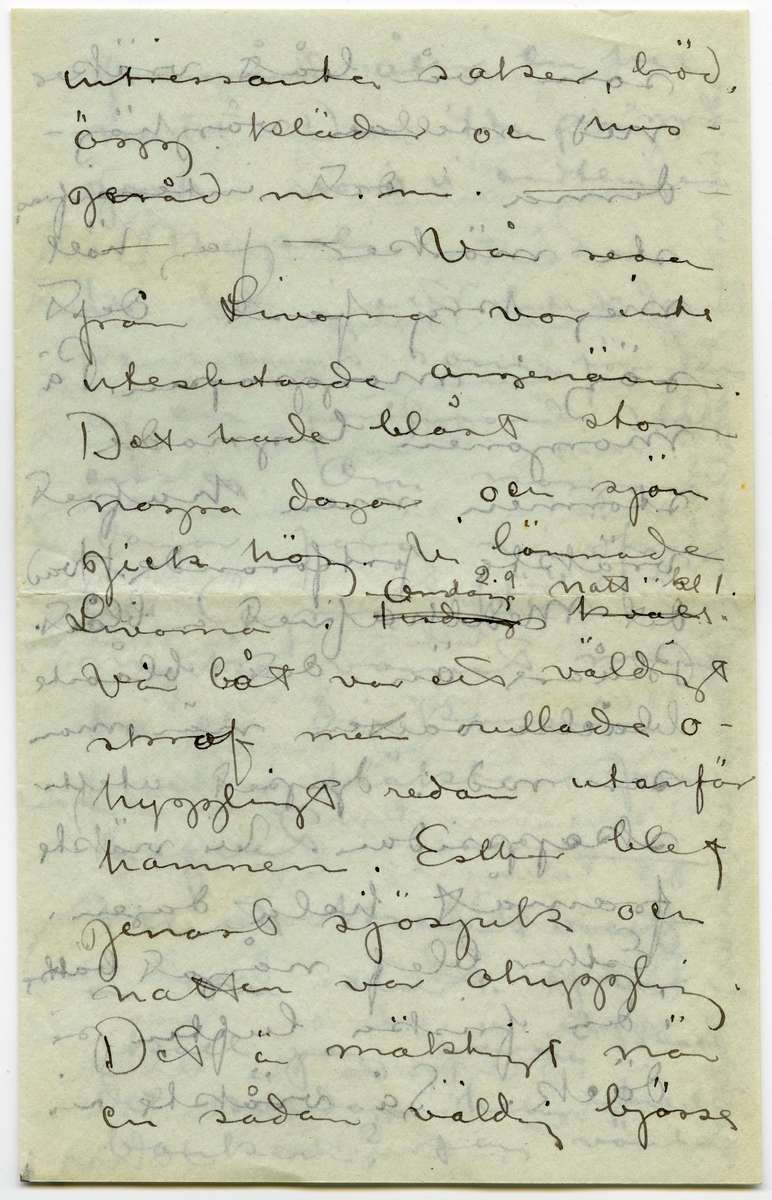 intressanta saker, bröd,
ägg kläder och hus-
geråd m.m. —
— Vår resa
från Livorna var inte
uteslutande angenäm.
Det hade blåst storm
några dagar och sjön
gick hög. Vi lämnade
2.9
Onsdag natt kl 1.
Livorna i kväll.
Vår båt var ett väldigt
skrof men rullade o-
hyggligt redan utanför
hamnen. Esther blef
genast sjösjuk och
natten var ohygglig.
Det är mäktigt när
en sådan väldig bjässe